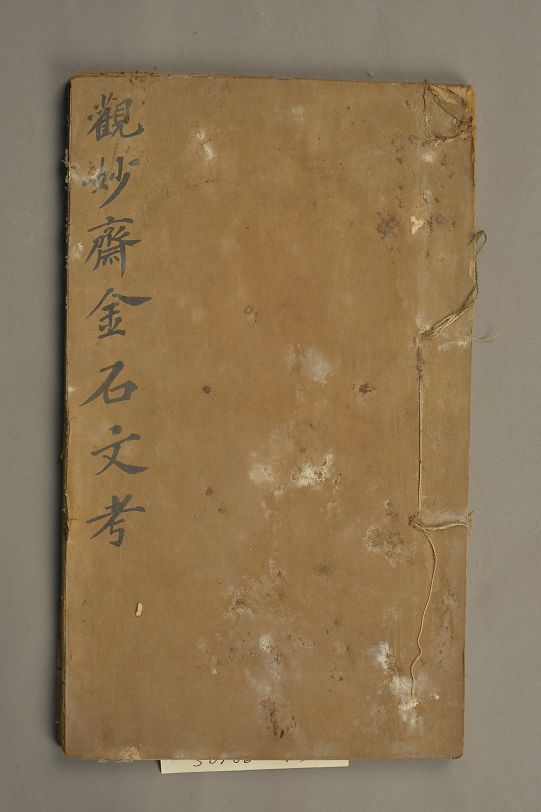 觀妙齋金石文考